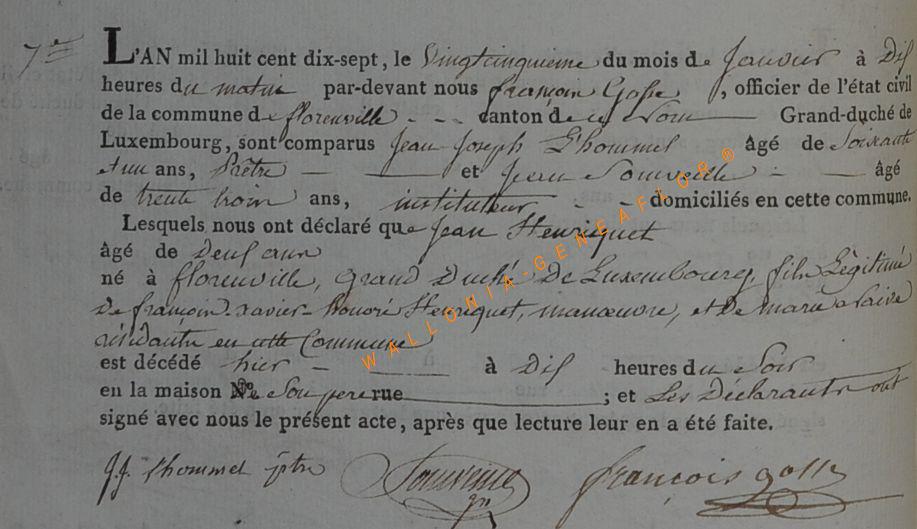 7.me
L'AN mil huit cent dix-sept, le Vingtcinquieme du mois de Janvier à Dix
heures du matin par-devant nous françois Gosse, officier de l'état civil
de la commune de florenville canton de Grand-duché de
Luxembourg, sont comparus Jean Joseph Lhommel âgé de Soixante
et un ans, Prêtre et Jean âgé
de trente trois ans, instituteur domiciliés en cette commune.
Lesquels nous ont déclaré que Jean Henriquet
âgé de Deux ans
né à florenville, Grand Duché De Luxembourg, fils Légitime
De françois-xavier-honoré Henriquet, manœuvre, et De marie
résidants en cette Commune
est décédé hier à Dix heures du Soir
en la maison De Son pere rue ; et Les Déclarants ont
signé avec nous le présent acte, après que lecture leur en a été faite.
J.J. Lhommel ptre françois gosse
WALLONIA-GENEAFLOR®